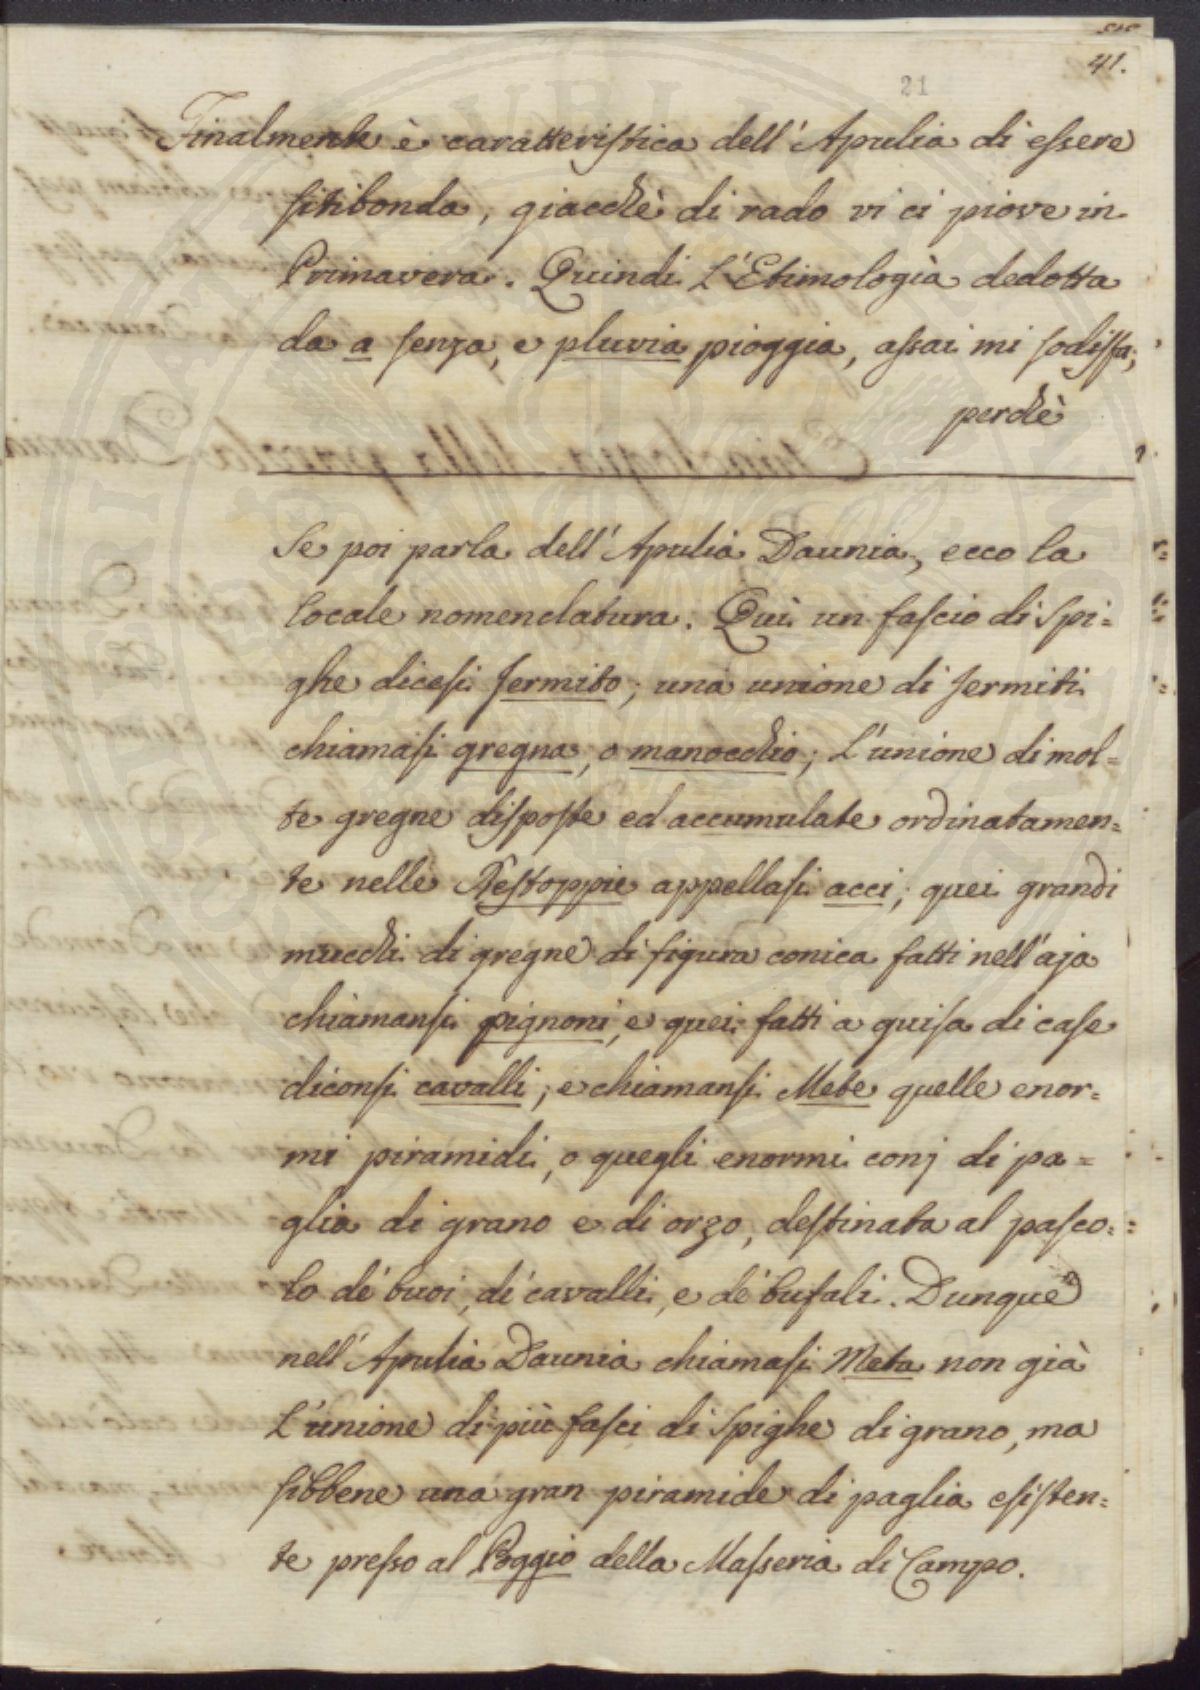 41.
21
Finalmente è caratteristica dell'Apulia di essere
sitibonda, giacchè di rado vi ci piove in
Primavera. Quindi L'Etimologia dedotta
da a senza, e pluvia pioggia, assai mi sodisfa;
perchè
Se poi parla dell'Apulia Daunia, ecco la
locale nomenclatura. Quì un fascio di spi=
ghe dicesi sermito; una unione di sermiti
chiamasi gregna, o manocchio; L'unione di mol=
te gregne disposte ed accumulate ordinatamen=
te nelle Restoppie appellasi acci; quei grandi
mucchi di gregne di figura conica fatti nell'aja
chiamansi pignoni, e quei fatti a guisa di case
diconsi cavalli; e chiamansi Mete quelle enor=
mi piramidi, o quegli enormi conj di pa=
glia di grano e di orzo, destinata al pasco=
lo de' buoi, di cavalli, e de' bufali. Dunque
nell'Apulia Daunia chiamasi Meta non già
L'unione di più fasci di spighe di grano, ma
sibbene una gran piramide di paglia esisten=
te presso al Poggio della Masseria di Campo.